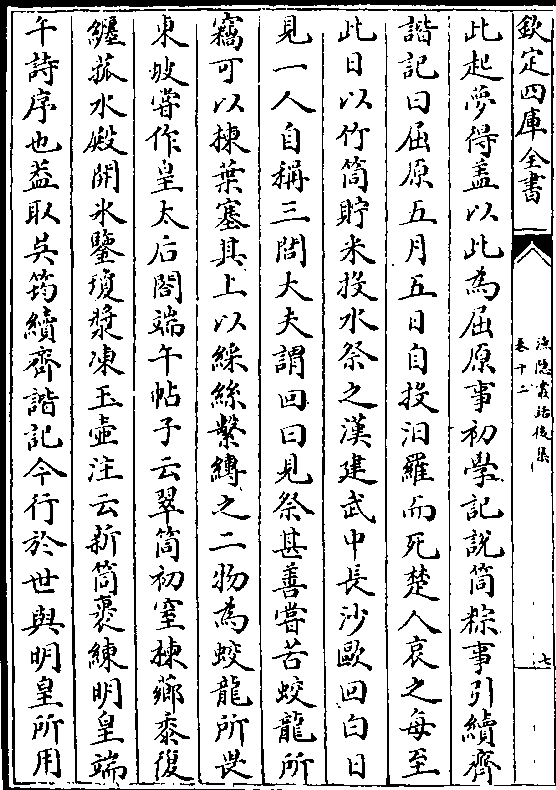 欽定四庫全書
漁隱叢話後集
卷十二
七
此起夢得蓋以此為屈原事初學記說筒粽事引續齊
諧記曰屈原五月五日自投汨羅而死楚人哀之每至
此日以竹筒貯米投水祭之漢建武中長沙歐回白日
見一人自稱三閭大夫謂回曰見祭甚善嘗苦蛟龍所
竊可以楝葉塞其上以綵絲繫縛之二物為蛟龍所畏
東坡嘗作皇太后閤端午帖子云翠筒初窒楝薌黍復
纏菰水殿開冰鑒瓊漿凍玉壺注云新筒裹練明皇端
午詩序也蓋取吳筠續齊諧記今行於世與明皇所用